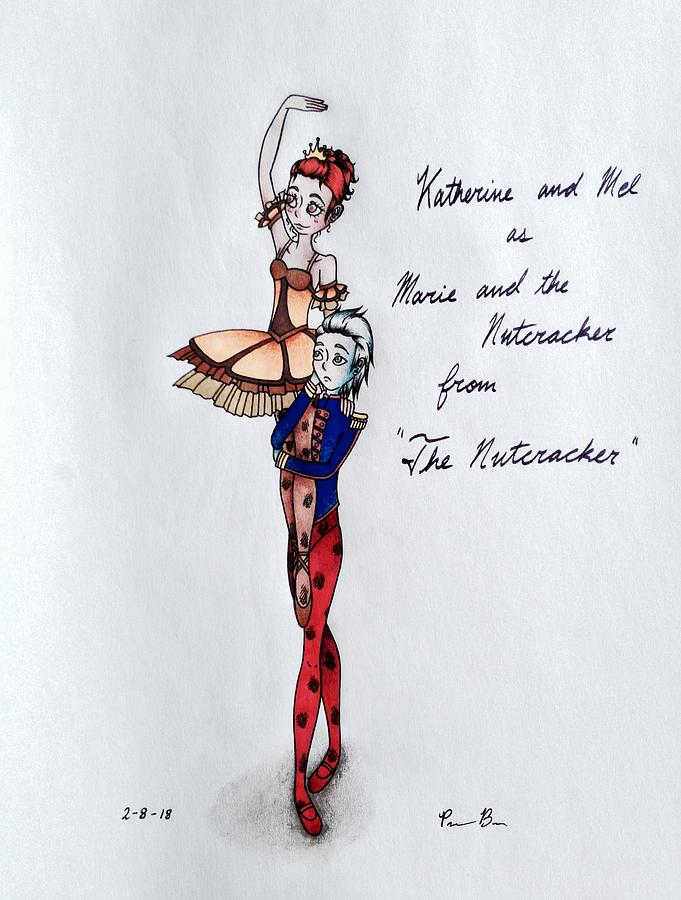 "Katherine and Mel
as
Marie and the
Nutcracker
from
"The Nutcracker"
2-8-18